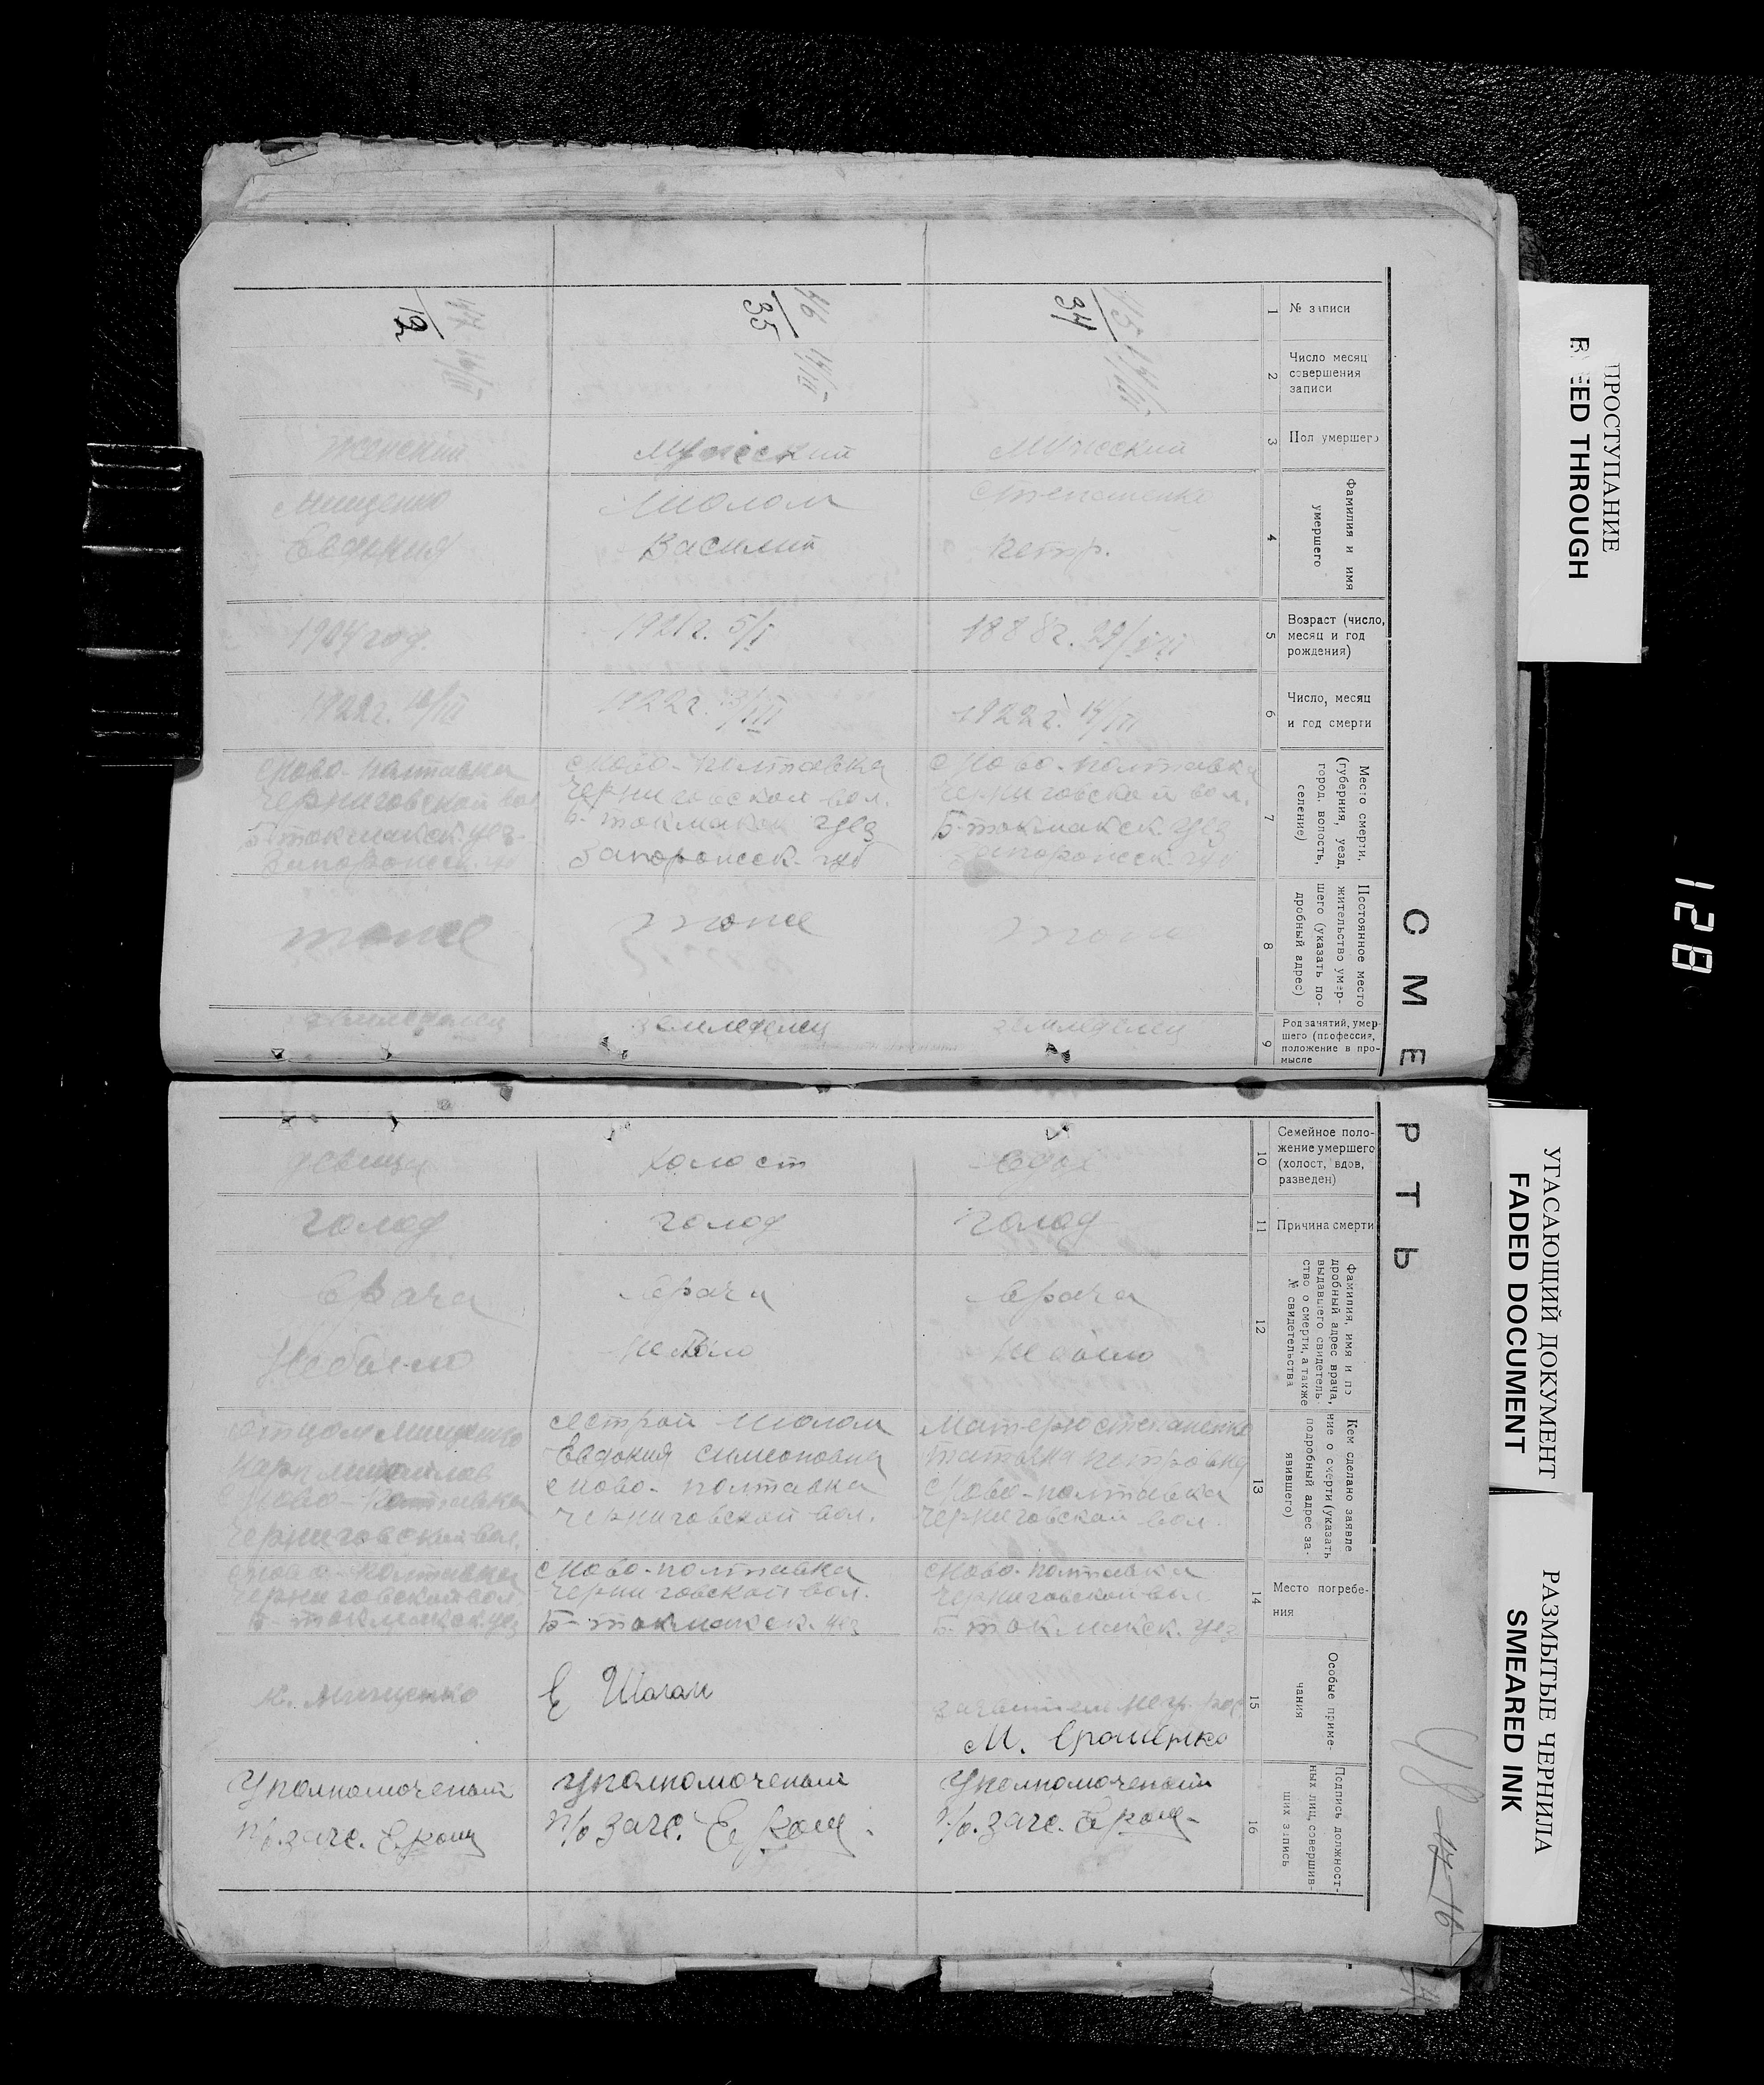 СМЕРТЬ
№ записи
1
Число месяц
совершения
записи
2
Пол умершего
3
Фамилия и имя
умершего
4
Возраст (число,
месяц и год
рождения)
5
Число, месяц
и год смерти
6
Место смерти,
(губерния, уезд,
город, волость,
селение)
7
Постоянное место
жительство умер-
шего (указать по-
дробный адрес)
8
Род занятий, умер-
шего (профессия,
положение в про-
мысле
9
Семейное поло-
жение умершего
(холост, вдов,
разведен)
10
Причина смерти
11
Фамилия, имя и по
дробный адрес врача,
выдавшего свидетель-
ство о смерти, а также
№ свидетельства
12
Кем сделано заявле
ние о смерти (указать
подробный адрес за-
явившего)
13
Место погребе-
ния
14
Особые приме-
чания
15
Подпись должност-
ных лиц, совершив-
ших запись
16
45/34
14/III
Мужеский
Степаненко
Петр.
1888г. 29/
1922г. 14/III
с Ново-Полтавка
Черниговской вол.
Б-токмакск. уез
Запорожск. губ
тоже
земледелец
голод
Врача
Не было
Матерю Степаненко
Петровна
с Ново-Полтавка
Черниговской вол.
с Ново-Полтавка
Черниговской вол.
Б-токмакск. уез
М.
Уполномоченый
п/о. загс.
46/35
14/III
Мужеский
Василий
1921г. 5/I
1922г. 13/III
с Ново-Полтавка
Черниговской вол.
Б-токмакск уез
Запорожск. губ
тоже
земледелец
холост
голод
Врача
Не было
Евдокия Симоновна
с Ново-Полтавка
Черниговской вол.
с Ново-Полтавка
Черниговской вол.
Б-токмакск. уез
Е
Уполномоченый
п/о загс.
47/12
16/III
Женский
Мищенко
Евдокия
1904 год.
1922г. 16/III
с Ново-Полтавка
Черниговской вол
Б-токмакск. уез.
Запорожск. губ
тоже
земледелец
девица
голод
Врача
Не было
Отцом Мищенко
Карп
с Ново-Полтавка
Черниговской вол.
с Ново-Полтавка
Черниговской вол.
Б-токмакск. уез
К. Мищенко
Уполномоченый
п/о. загс.
ПРОСТУПАНИЕ
BLEED THROUGH
128
УГАСАЮЩИЙ ДОКУМЕНТ
FADED DOCUMENT
РАЗМЫТЫЕ ЧЕРНИЛА
SMEARED INK